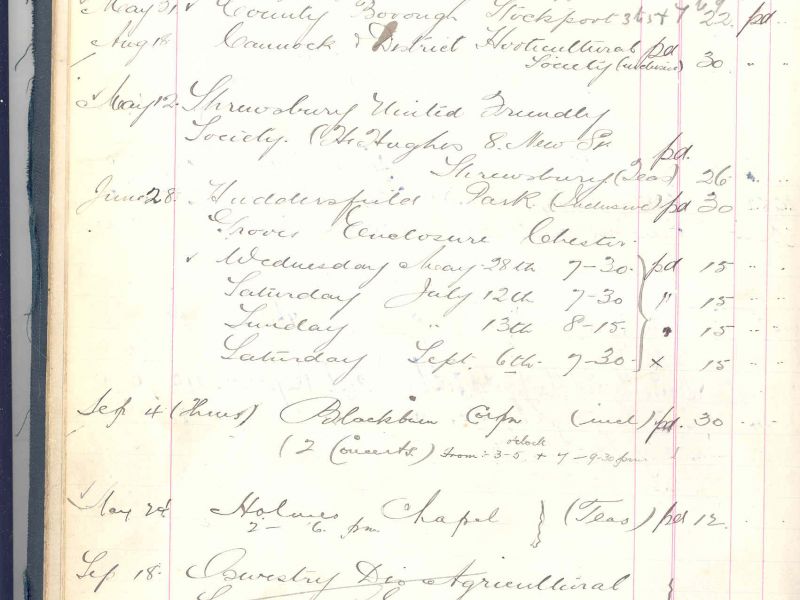 May 31 County Borough Stockport 3 to 5 & 7 to 9 22 pd
Aug 18 Cannock & District Horticultural pd
Society (inclusive) 30 " "
May 12 Shrewsbury United Friendly
Society. (H. Hughes 8. New St. pd.
Shrewsbury (Teas) 26 " "
June 28 Huddersfield Park (Inclusive) pd 30
Groves Enclosure Chester.
Wednesday May 28th 7-30 pd 15 " "
Saturday July 12th 7-30 " 15 " "
Sunday " 13th 8-15 " 15 " "
Saturday Sept. 6th 7-30 x 15 " "
Sep 4 (Thurs) Blackburn Corpn (incl) pd. 30 " "
(2 Concerts) From:- 3-5 o'clock + 7-9-30 pm
May 24 Holmes Chapel } (Teas) pd 12 " "
2 - 6 pm
Sep 18. Oswestry Dis Agricultural